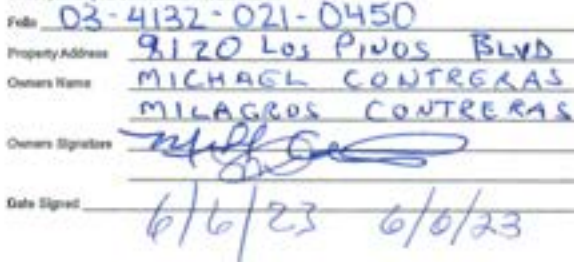 Folio 03-4132-021-0450
Property Address 8120 Los Pinos BLVD
Owners Name MICHAEL CONTRERAS
MILAGROS CONTRERAS
Owners Signature
Date Signed 6/6/23 6/6/23